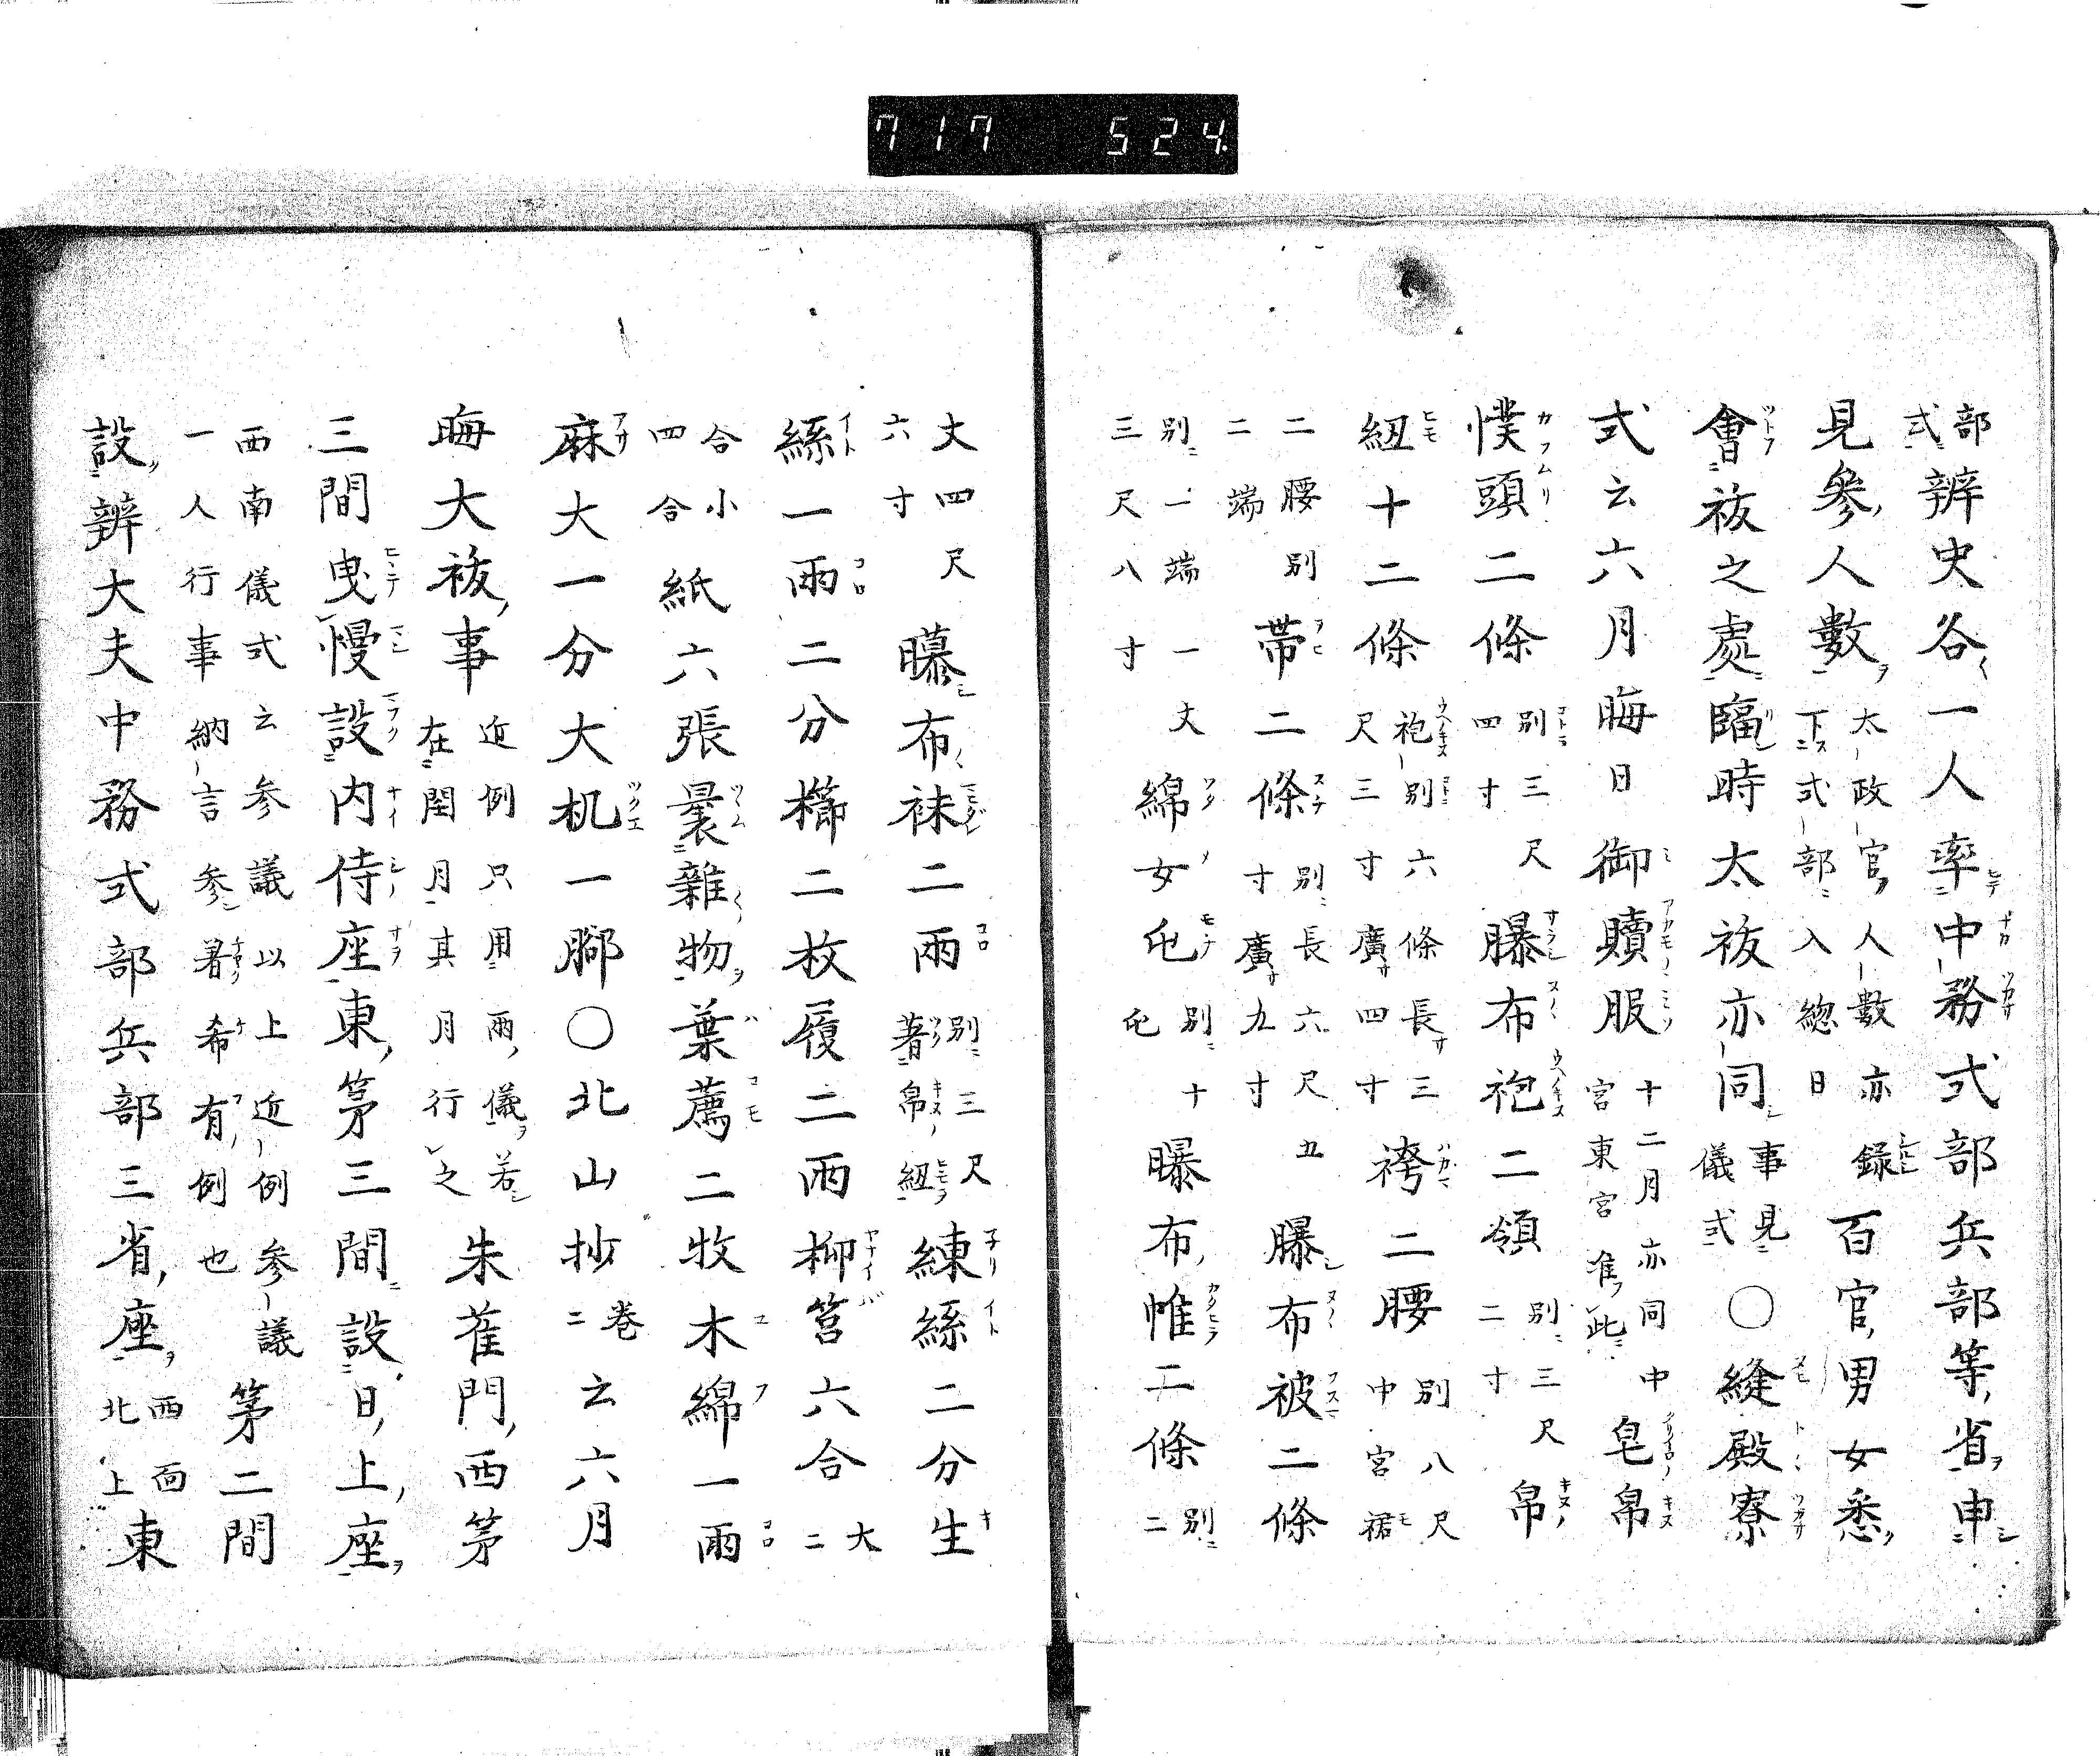 717 524
部式辨史各一人率中務式部兵部等省申
見參人數太政官人數亦下式部入總目録百官男女悉
會祓之處臨時大祓亦同事見儀式〇縫殿寮
式云六月晦日御贖服十二月亦同中宮東宮准此皂帛
幞頭二條別三尺四寸曝布袍二領別三尺二寸帛
紐十二條袍別六條長三尺三寸廣四寸袴二腰別八尺中宮裙
二腰別二端帶二條別長六尺五寸廣九寸曝布被二條
別一端一丈三尺八寸綿女屯別十屯曝布帷二條別二
丈四尺六寸曝布袜二兩別三尺著帛紐練絲二分生
絲一兩二分櫛二枚履二両柳筥六合大二
合小四合紙六張曩雜物葉薦二枚木綿一兩
麻大一分大机一脚〇北山抄卷二云六月
晦大祓事近例只用雨儀若在閏月其月行之朱雀門西茅
三間曳幔設内侍座東茅三間設日上座
西南儀式云参議以上近例参議一人行事納言参著希有例也茅二間
設辨大夫中務式部兵部三省座西面北上東